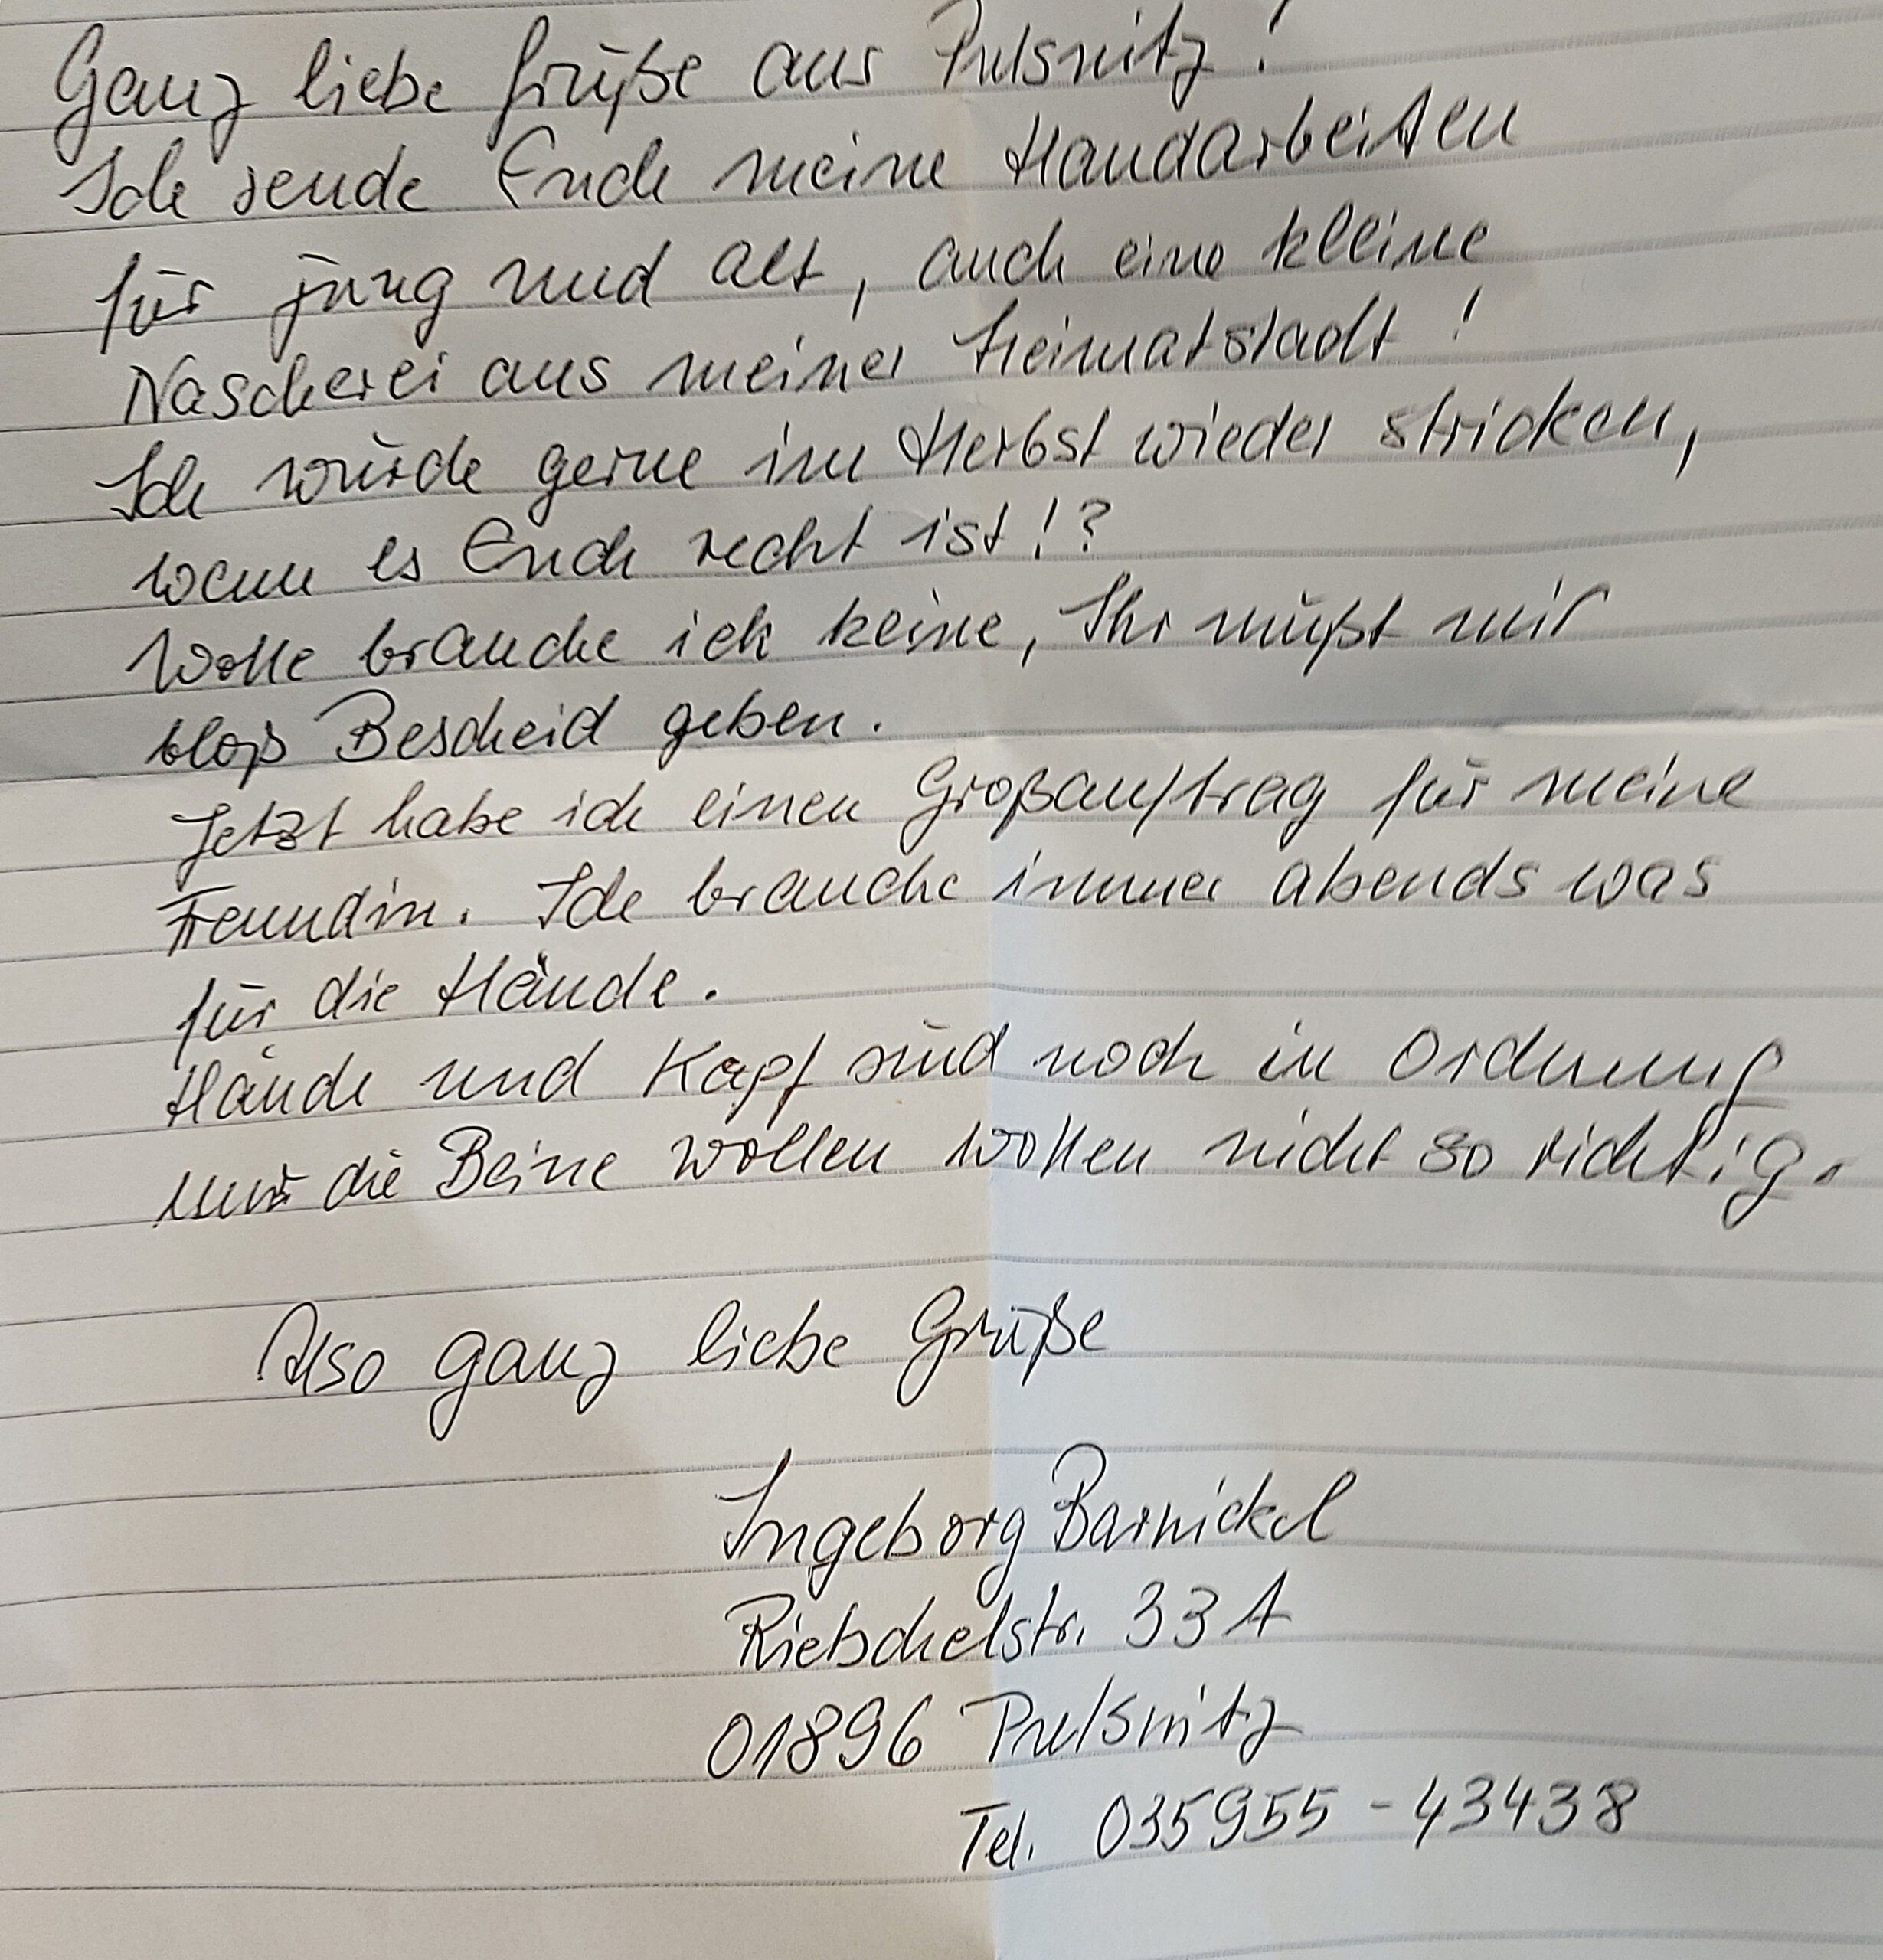 Ganz liebe Grüße aus Pulsnitz!
Ich sende Euch meine Handarbeiten
für jung und alt, auch eine kleine
Nascherei aus meiner Heimatstadt!
Ich würde gerne im Herbst wieder stricken,
wenn es Euch recht ist!?
Wolle brauche ich keine, Ihr müßt mir
bloß Bescheid geben.
Jetzt habe ich einen Großauftrag für meine
Freundin. Ich brauche immer abends was
für die Hände.
Hände und Kopf sind noch in Ordnung
nur die Beine wollen wollen nicht so richtig.
Also ganz liebe Grüße
Ingeborg Barnickel
Rietschelstr. 33A
01896 Pulsnitz
Tel. 035955-43438